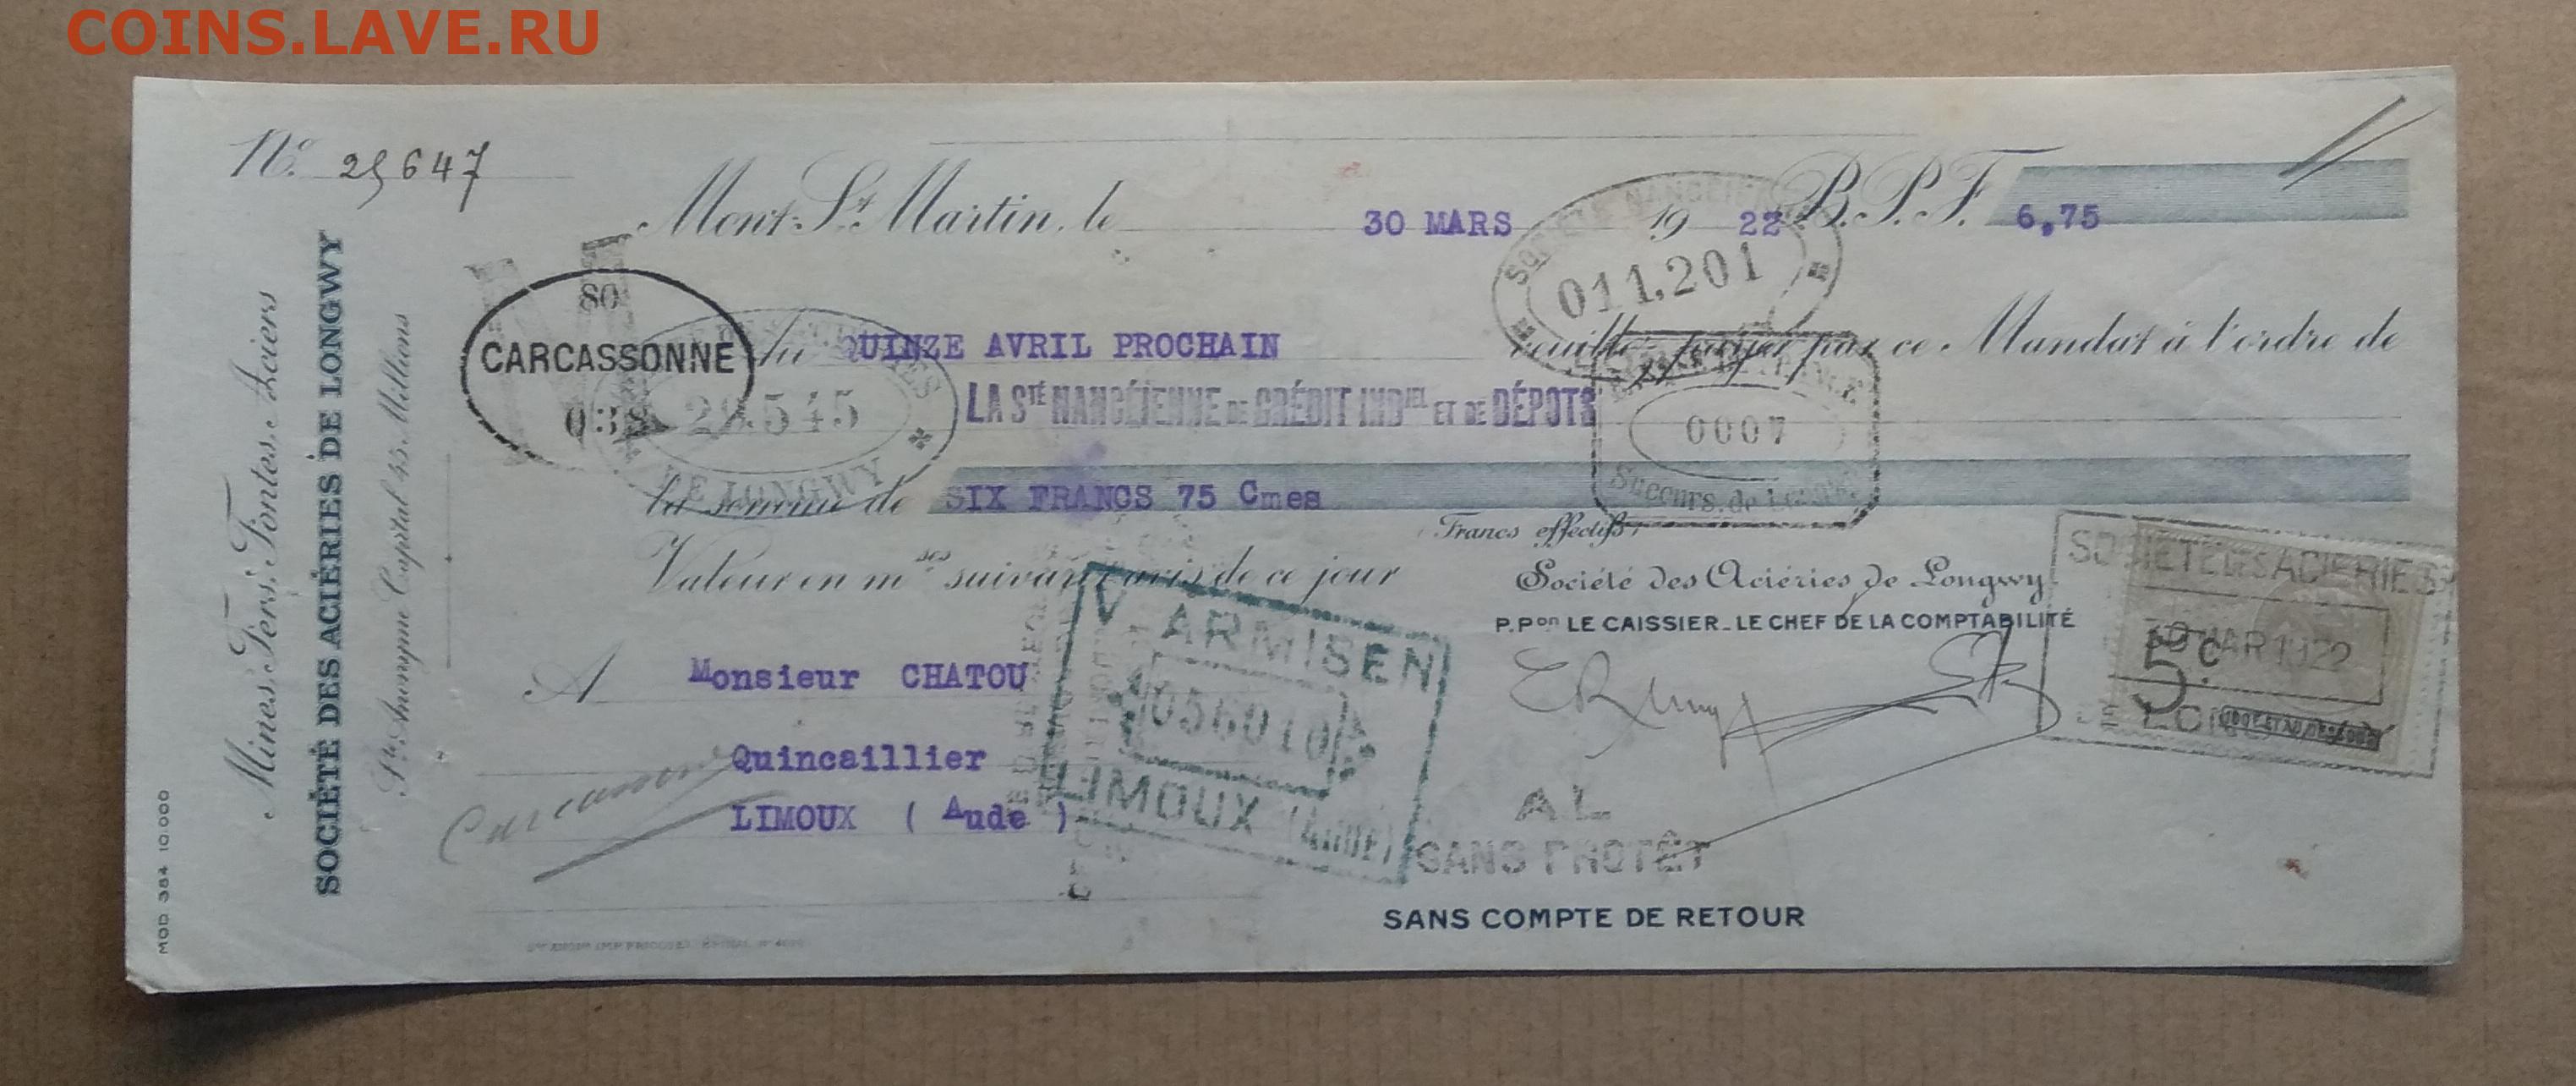 COINS.LAVE.RU
No. 25647
Mont-St Martin, le 30 MARS 1922 B.P.F. 6,75
SOCIÉTÉ NANCÉI
011,201
80
CARCASSONNE
038
Au QUINZE AVRIL PROCHAIN veuillez payer par ce Mandat à l'ordre de
28.545
DE LONGWY
LA STÉ NANCÉIENNE DE CRÉDIT INDIEL ET DE DÉPOTS
0007
Succurs. de
la somme de SIX FRANCS 75 Cmes
Francs effectifs,
Valeur en mses suivant avis de ce jour
Société des Aciéries de Longwy
P.Pon LE CAISSIER_LE CHEF DE LA COMPTABILITÉ
SOCIÉTÉ DES ACIERIES
30 MAR 1922
5 c.
A Monsieur CHATOU
Quincaillier
LIMOUX ( Aude )
Carcassonne
V ARMISEN
LIMOUX (Aude)
AL
SANS PROTÊT
SANS COMPTE DE RETOUR
Mines, Fers, Fontes, Aciers
SOCIÉTÉ DES ACIÉRIES DE LONGWY
Sté Anonyme Capital 45 Millions
MOD 384 10.000